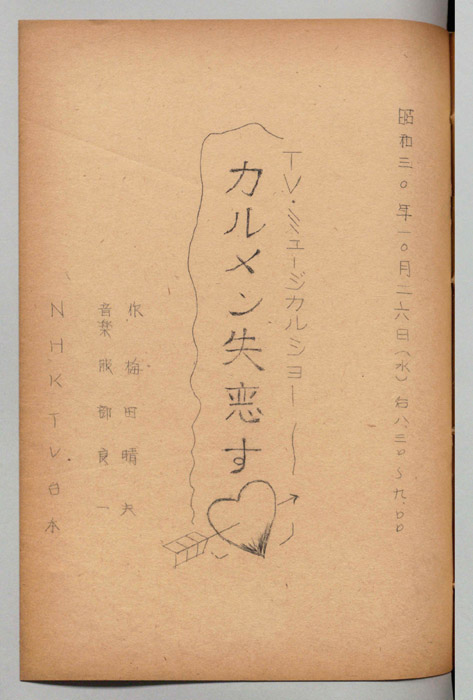 昭和三〇年一〇月二六日(水)后八.三〇~九.〇〇
TV・ミュージカルショー
カルメン失恋す
作 梅田晴夫
音楽 服部良一
NHKTV台本